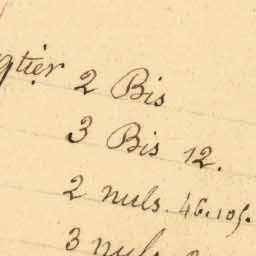 gtier 2 Bis
3 Bis 12.
2 nuls. 46.105.
3 nuls